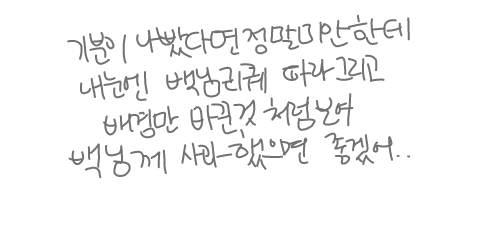 기분이 나빴다면 정말미안한데
내눈엔 백님귀퀘 따라그리고
배경만 바뀐것 처럼보여
백님께 사과했으면 좋겠어..